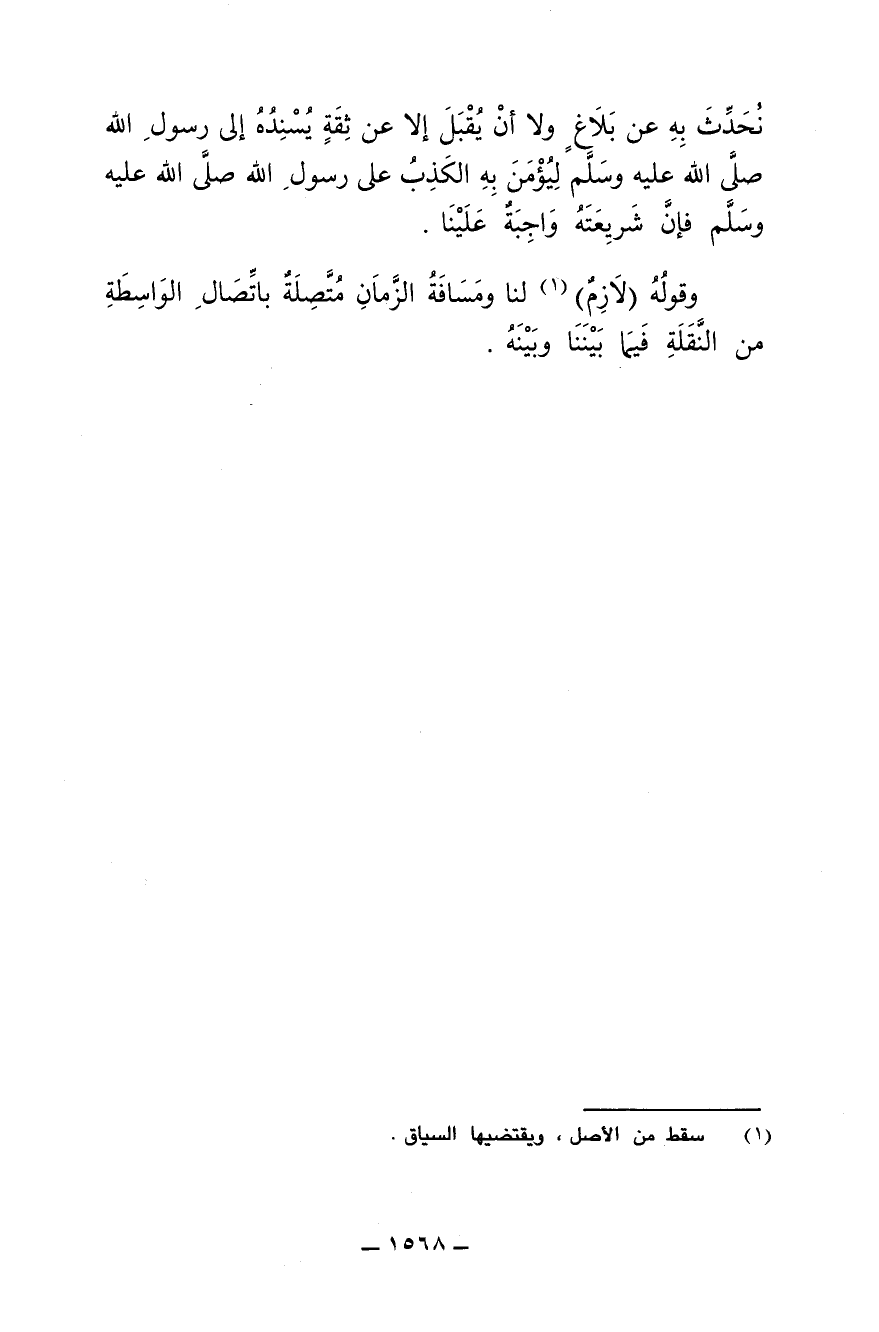 نُحَدِّثَ بِهِ عن بَلَاغٍ ولا أنْ يُقْبَلَ إلا عن ثِقَةٍ يُسْنِدُهُ إلى رسولِ الله
صلَّى الله عليه وسَلَّم لِيُؤْمَنَ بِهِ الكَذِبُ على رسولِ الله صلَّى الله عليه
وسَلَّم فإنَّ شَريِعَتَهُ وَاجِبَةٌ عَلَيْنَا .
وقولُهُ (لَازِمٌ) (١) لنا ومَسَافَةُ الزَّماَنِ مُتَّصِلَةٌ باتِّصَالِ الوَاسِطَةِ
من النَّقَلَةِ فَيمَا بَيْنَنَا وبَيْنَهُ .
(١) سقط من الأصل ، ويقتضيها السياق .
ــ ١٥٦٨ ــ